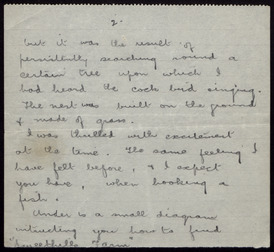 2.
but it was the result of
persistently searching round a
certain tree upon which I
had heard the cock bird singing.
The nest was built on the ground
& made of grass.
I was thrilled with excitement
at the time. The same feeling I
have felt before, & I expect
you have, when hooking a
fish.
Under is a small diagram
instructing you how to find
Farm"